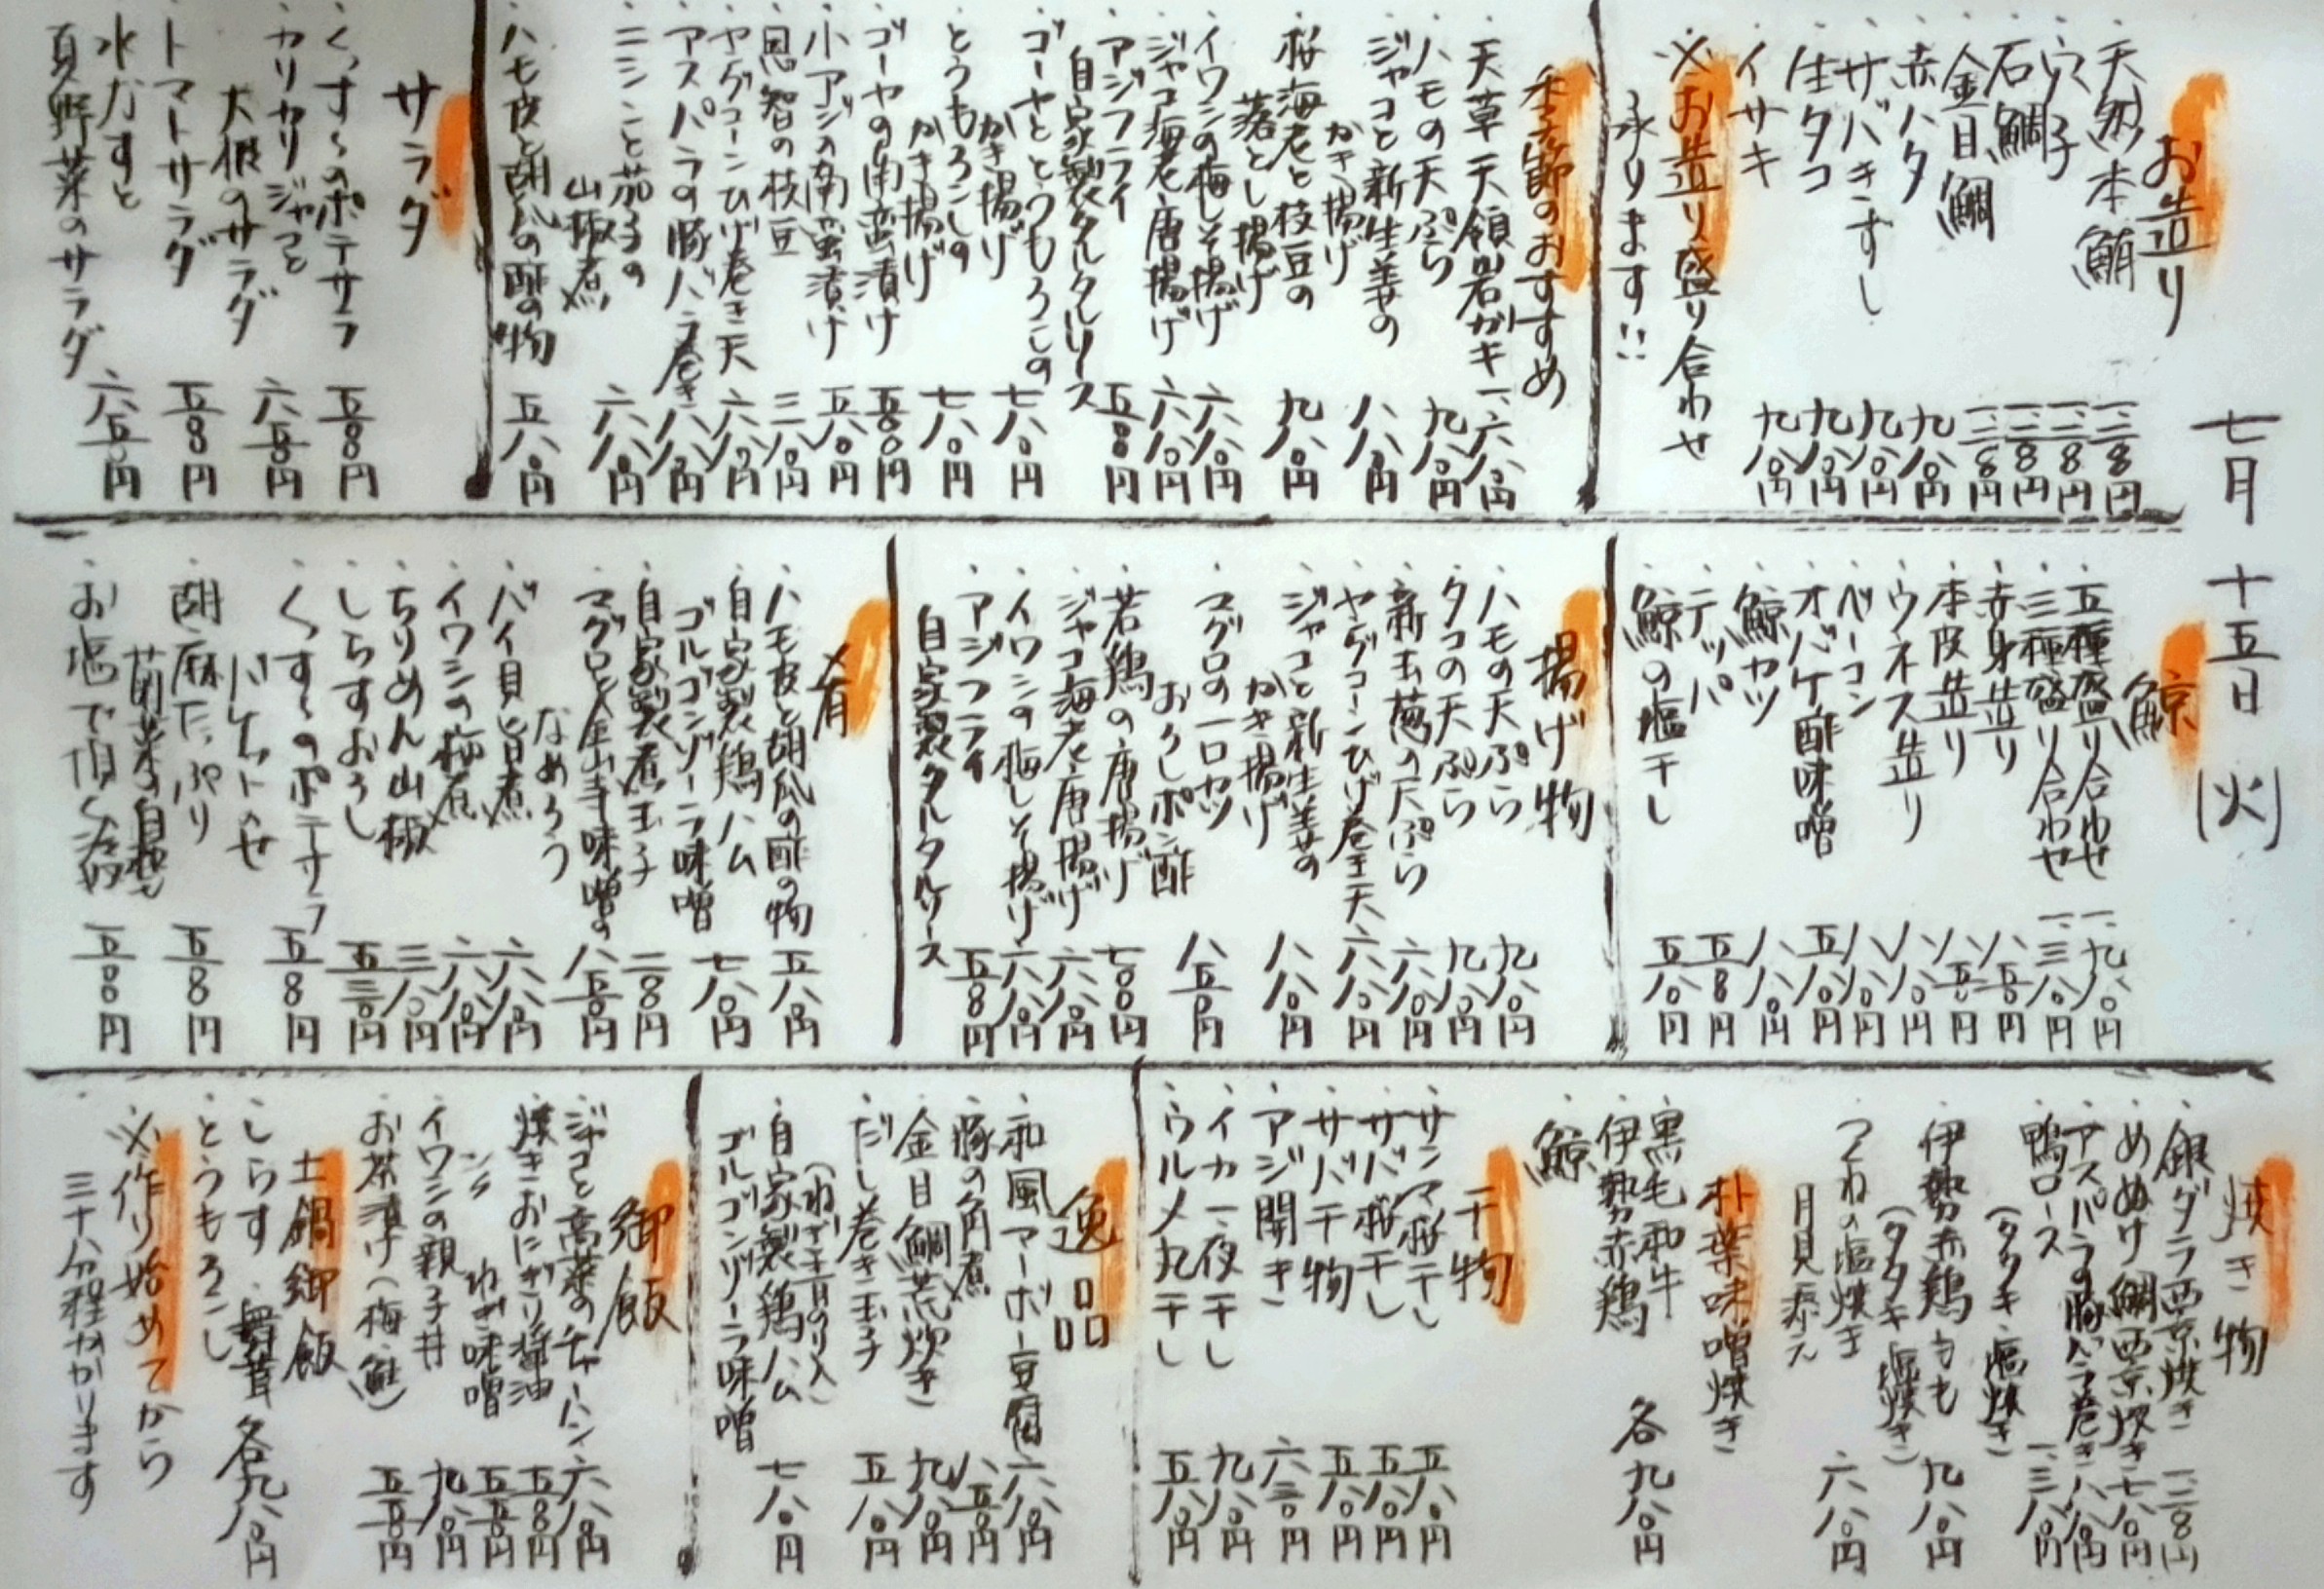 七月十五日(火)
お造り
天然本鮪 一二八〇円
穴子 一二八〇円
石鯛 一二八〇円
金目鯛 一二八〇円
赤ハタ 九八〇円
サバきずし 九八〇円
生タコ 九八〇円
イサキ 九八〇円
※お造り盛り合わせ
承ります!!
季節のおすすめ
天草 天領岩ガキ 一、六八〇円
ハモの天ぷら 九八〇円
ジャコと新生姜の
かき揚げ 八八〇円
桜海老と枝豆の
落とし揚げ 九八〇円
イワシの梅しそ揚げ 六八〇円
ジャコ海老唐揚げ 六八〇円
アジフライ
自家製タルタルソース 五八〇円
ゴーヤととうもろこしの
かき揚げ 七八〇円
とうもろこしの
かき揚げ 七八〇円
ゴーヤの南蛮漬け 五八〇円
小アジの南蛮漬け 五八〇円
恩智の枝豆 三八〇円
ヤングコーンひげ巻き天 六八〇円
アスパラの豚バラ巻き 八八〇円
ニシンと茄子の
山椒煮 六八〇円
ハモ皮と胡瓜の酢の物 五八〇円
サラダ
くっすーのポテサラ 五八〇円
カリカリジャコと
大根のサラダ 六五〇円
トマトサラダ 五八〇円
水なすと
夏野菜のサラダ 六五〇円
鯨
五種盛り合わせ 一、九八〇円
三種盛り合わせ 一、三八〇円
赤身造り 八五〇円
本皮造り 八五〇円
ウネス造り 八八〇円
ベーコン 八八〇円
オバケ酢味噌 五八〇円
鯨カツ 八八〇円
テッパ 五八〇円
鯨の塩干し 五八〇円
揚げ物
ハモの天ぷら 九八〇円
タコの天ぷら 九八〇円
新玉葱の天ぷら 六八〇円
ヤングコーンひげ巻き天 六八〇円
ジャコと新生姜の
かき揚げ 八八〇円
マグロの一口カツ
おろしポン酢 八五〇円
若鶏の唐揚げ 七〇〇円
ジャコ海老唐揚げ 六八〇円
イワシの梅しそ揚げ 六八〇円
アジフライ
自家製タルタルソース 五八〇円
肴
ハモ皮と胡瓜の酢の物 五八〇円
自家製鶏ハム
ゴルゴンゾーラ味噌 七八〇円
自家製煮玉子 二八〇円
マグロと金山寺味噌の
なめろう 八五〇円
バイ貝旨煮 六八〇円
イワシの梅煮 六八〇円
ちりめん山椒 三八〇円
しらすおろし 五三〇円
くっすーのポテサラ
バケットのせ 五八〇円
胡麻たっぷり
五八〇円
お塩で頂く冷奴 五八〇円
焼き物
銀ダラ西京焼き 一二八〇円
めぬけ鯛西京焼き 七八〇円
アスパラの豚バラ巻き 八八〇円
鴨ロース
(タタキ・塩焼き) 一、三八〇円
伊勢赤鶏もも
(タタキ・塩焼き) 九八〇円
つくねの塩焼き
月見添え 六八〇円
朴葉味噌焼き
黒毛和牛
伊勢赤鶏
鯨 各九八〇円
干物
サンマ桜干し 五八〇円
サバ桜干し 五八〇円
サバ干物 五八〇円
アジ開き 六三〇円
イカ一夜干し 九八〇円
ウルメ丸干し 五八〇円
逸品
和風マーボー豆腐 六八〇円
豚の角煮 八五〇円
金目鯛荒炊き 九八〇円
だし巻き玉子
(ねぎ青のり入) 五八〇円
自家製鶏ハム
ゴルゴンゾーラ味噌 七八〇円
御飯
ジャコと高菜のチャーハン 六八〇円
焼きおにぎり醤油 五八〇円
〃 ねぎ味噌 五五〇円
イワシの親子丼 九八〇円
お茶漬け(梅・鮭) 五五〇円
土鍋御飯
しらす 舞茸
とうもろこし 各九八〇円
※作り始めてから
三十分程かかります